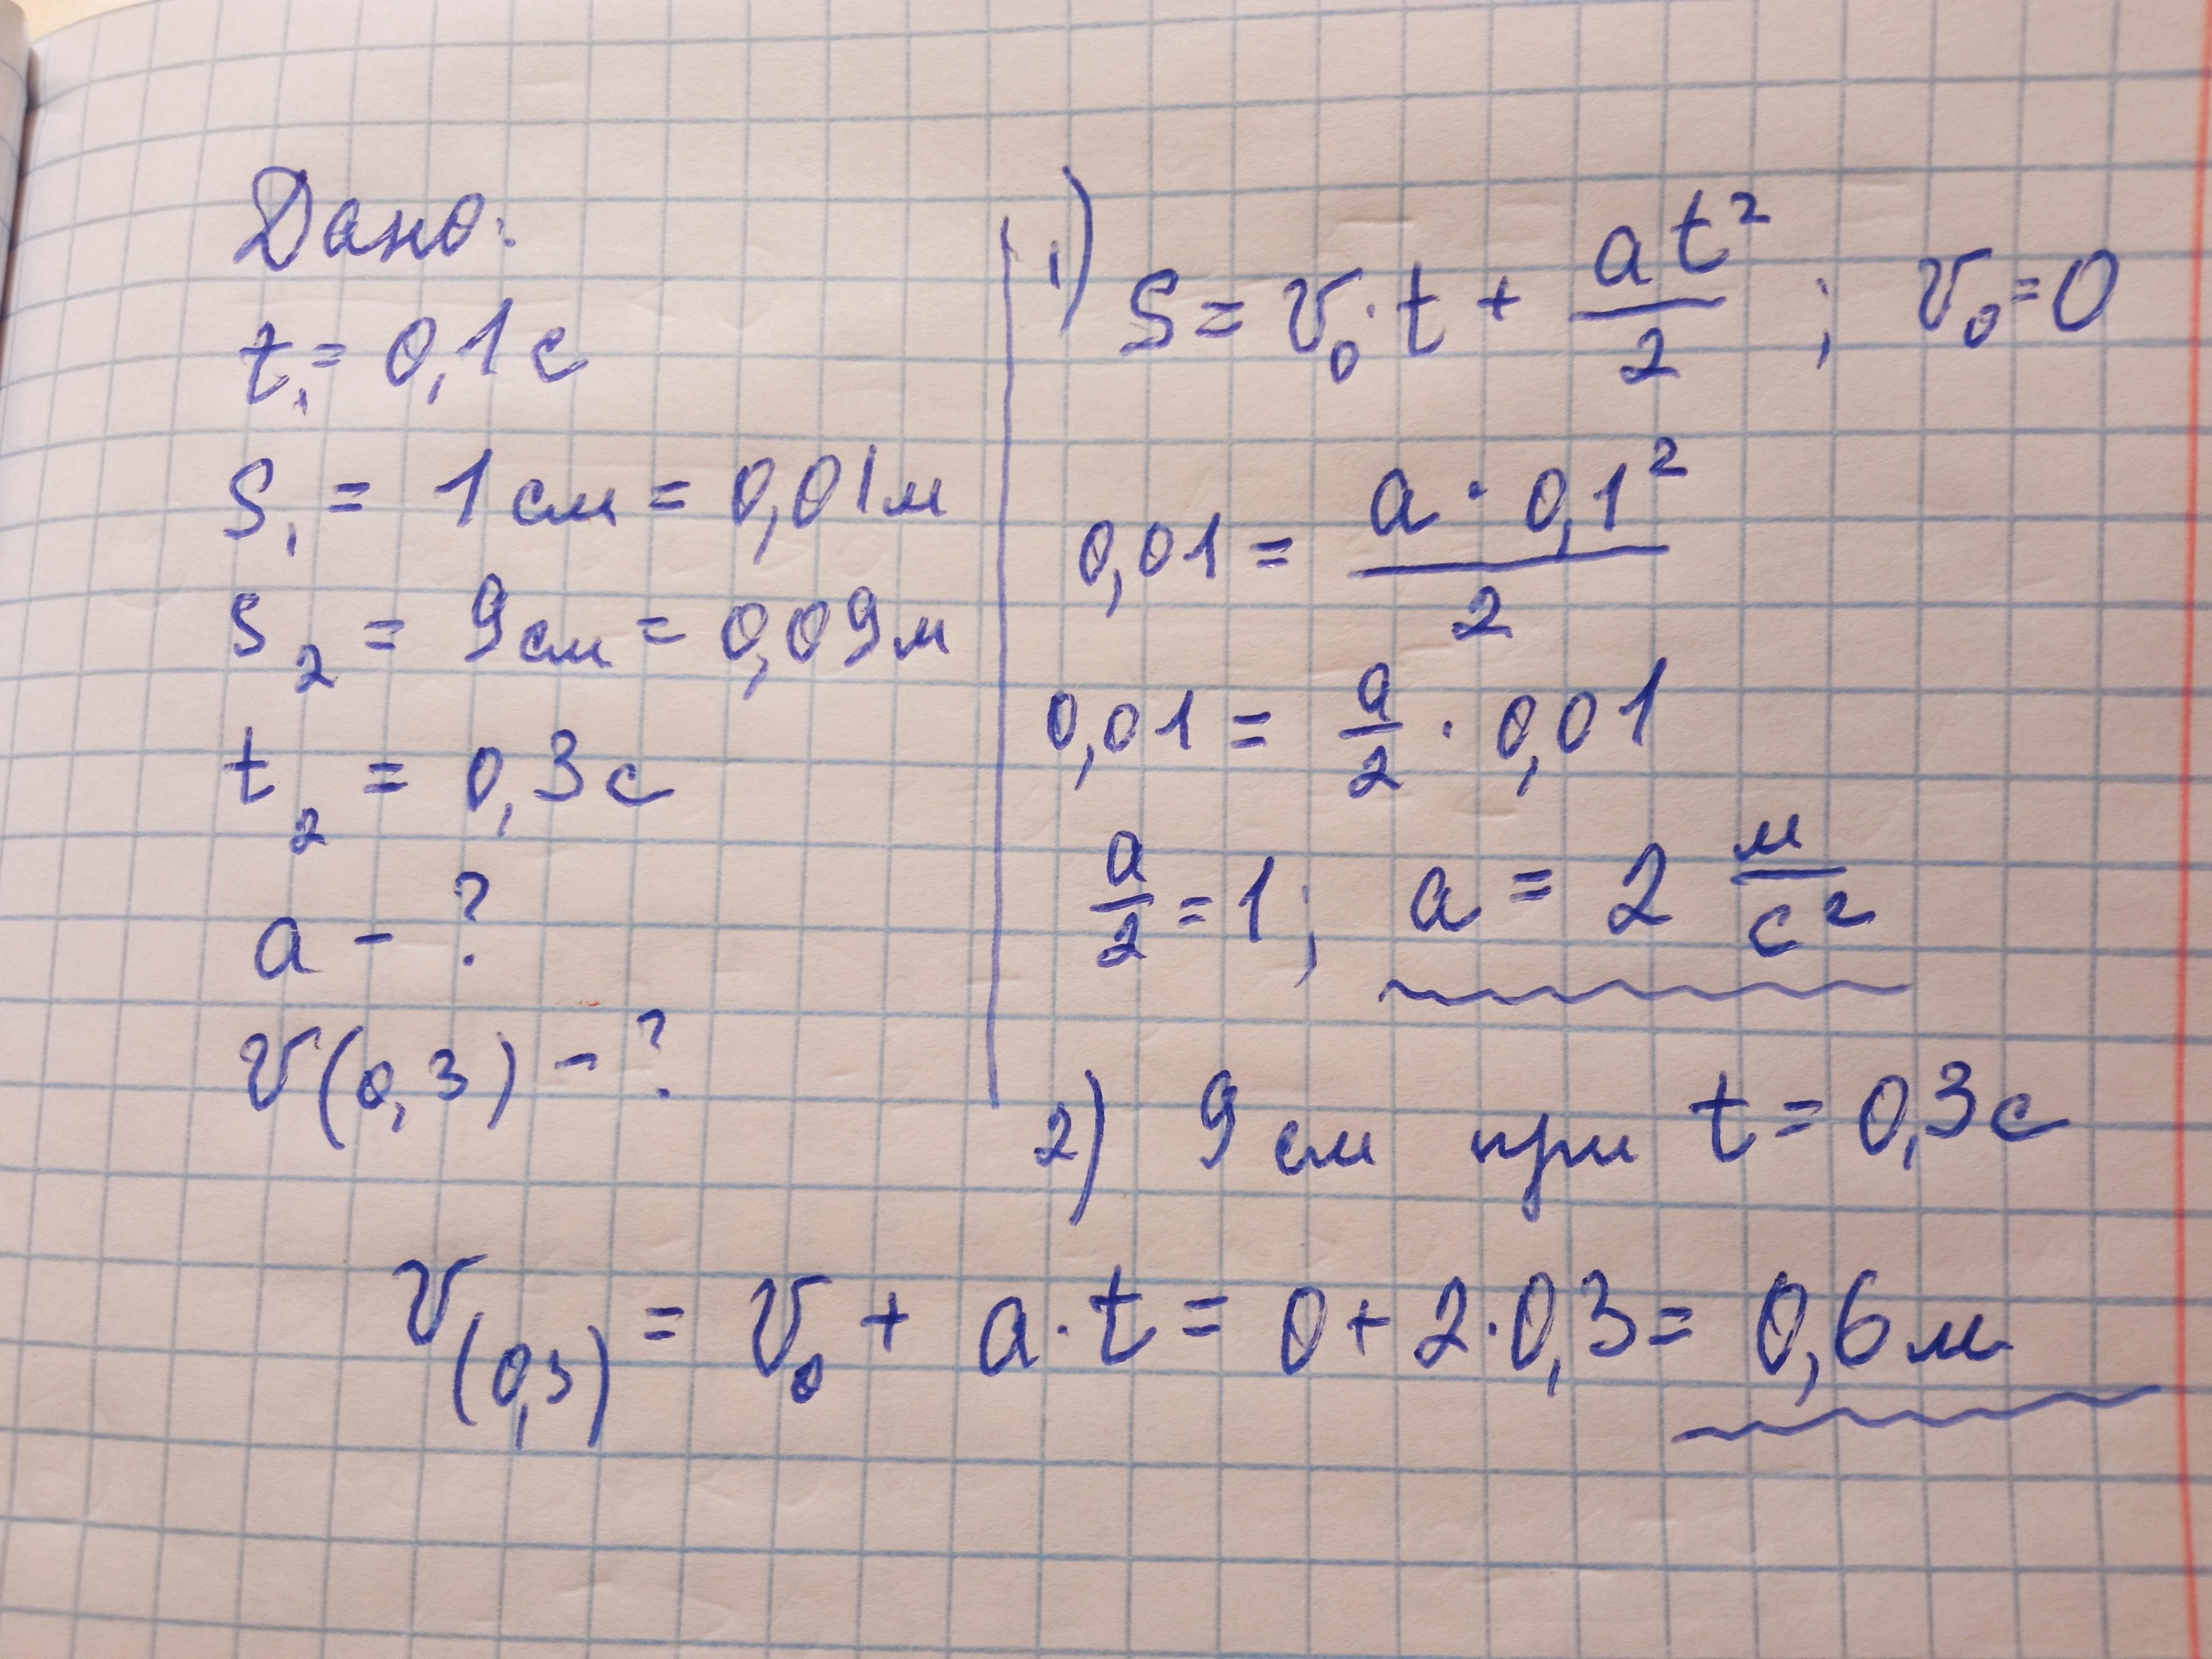 Дано:
t₁ = 0,1 с
S₁ = 1 см = 0,01 м
S₂ = 9 см = 0,09 м
t₂ = 0,3 с
a - ?
v(0,3) - ?
1) S = v₀·t + at²/2 ; v₀ = 0
0,01 = a · 0,1²/2
0,01 = a/2 · 0,01
a/2 = 1; a = 2 м/с²
2) 9 см при t = 0,3 с
v(0,3) = v₀ + a·t = 0 + 2·0,3 = 0,6 м